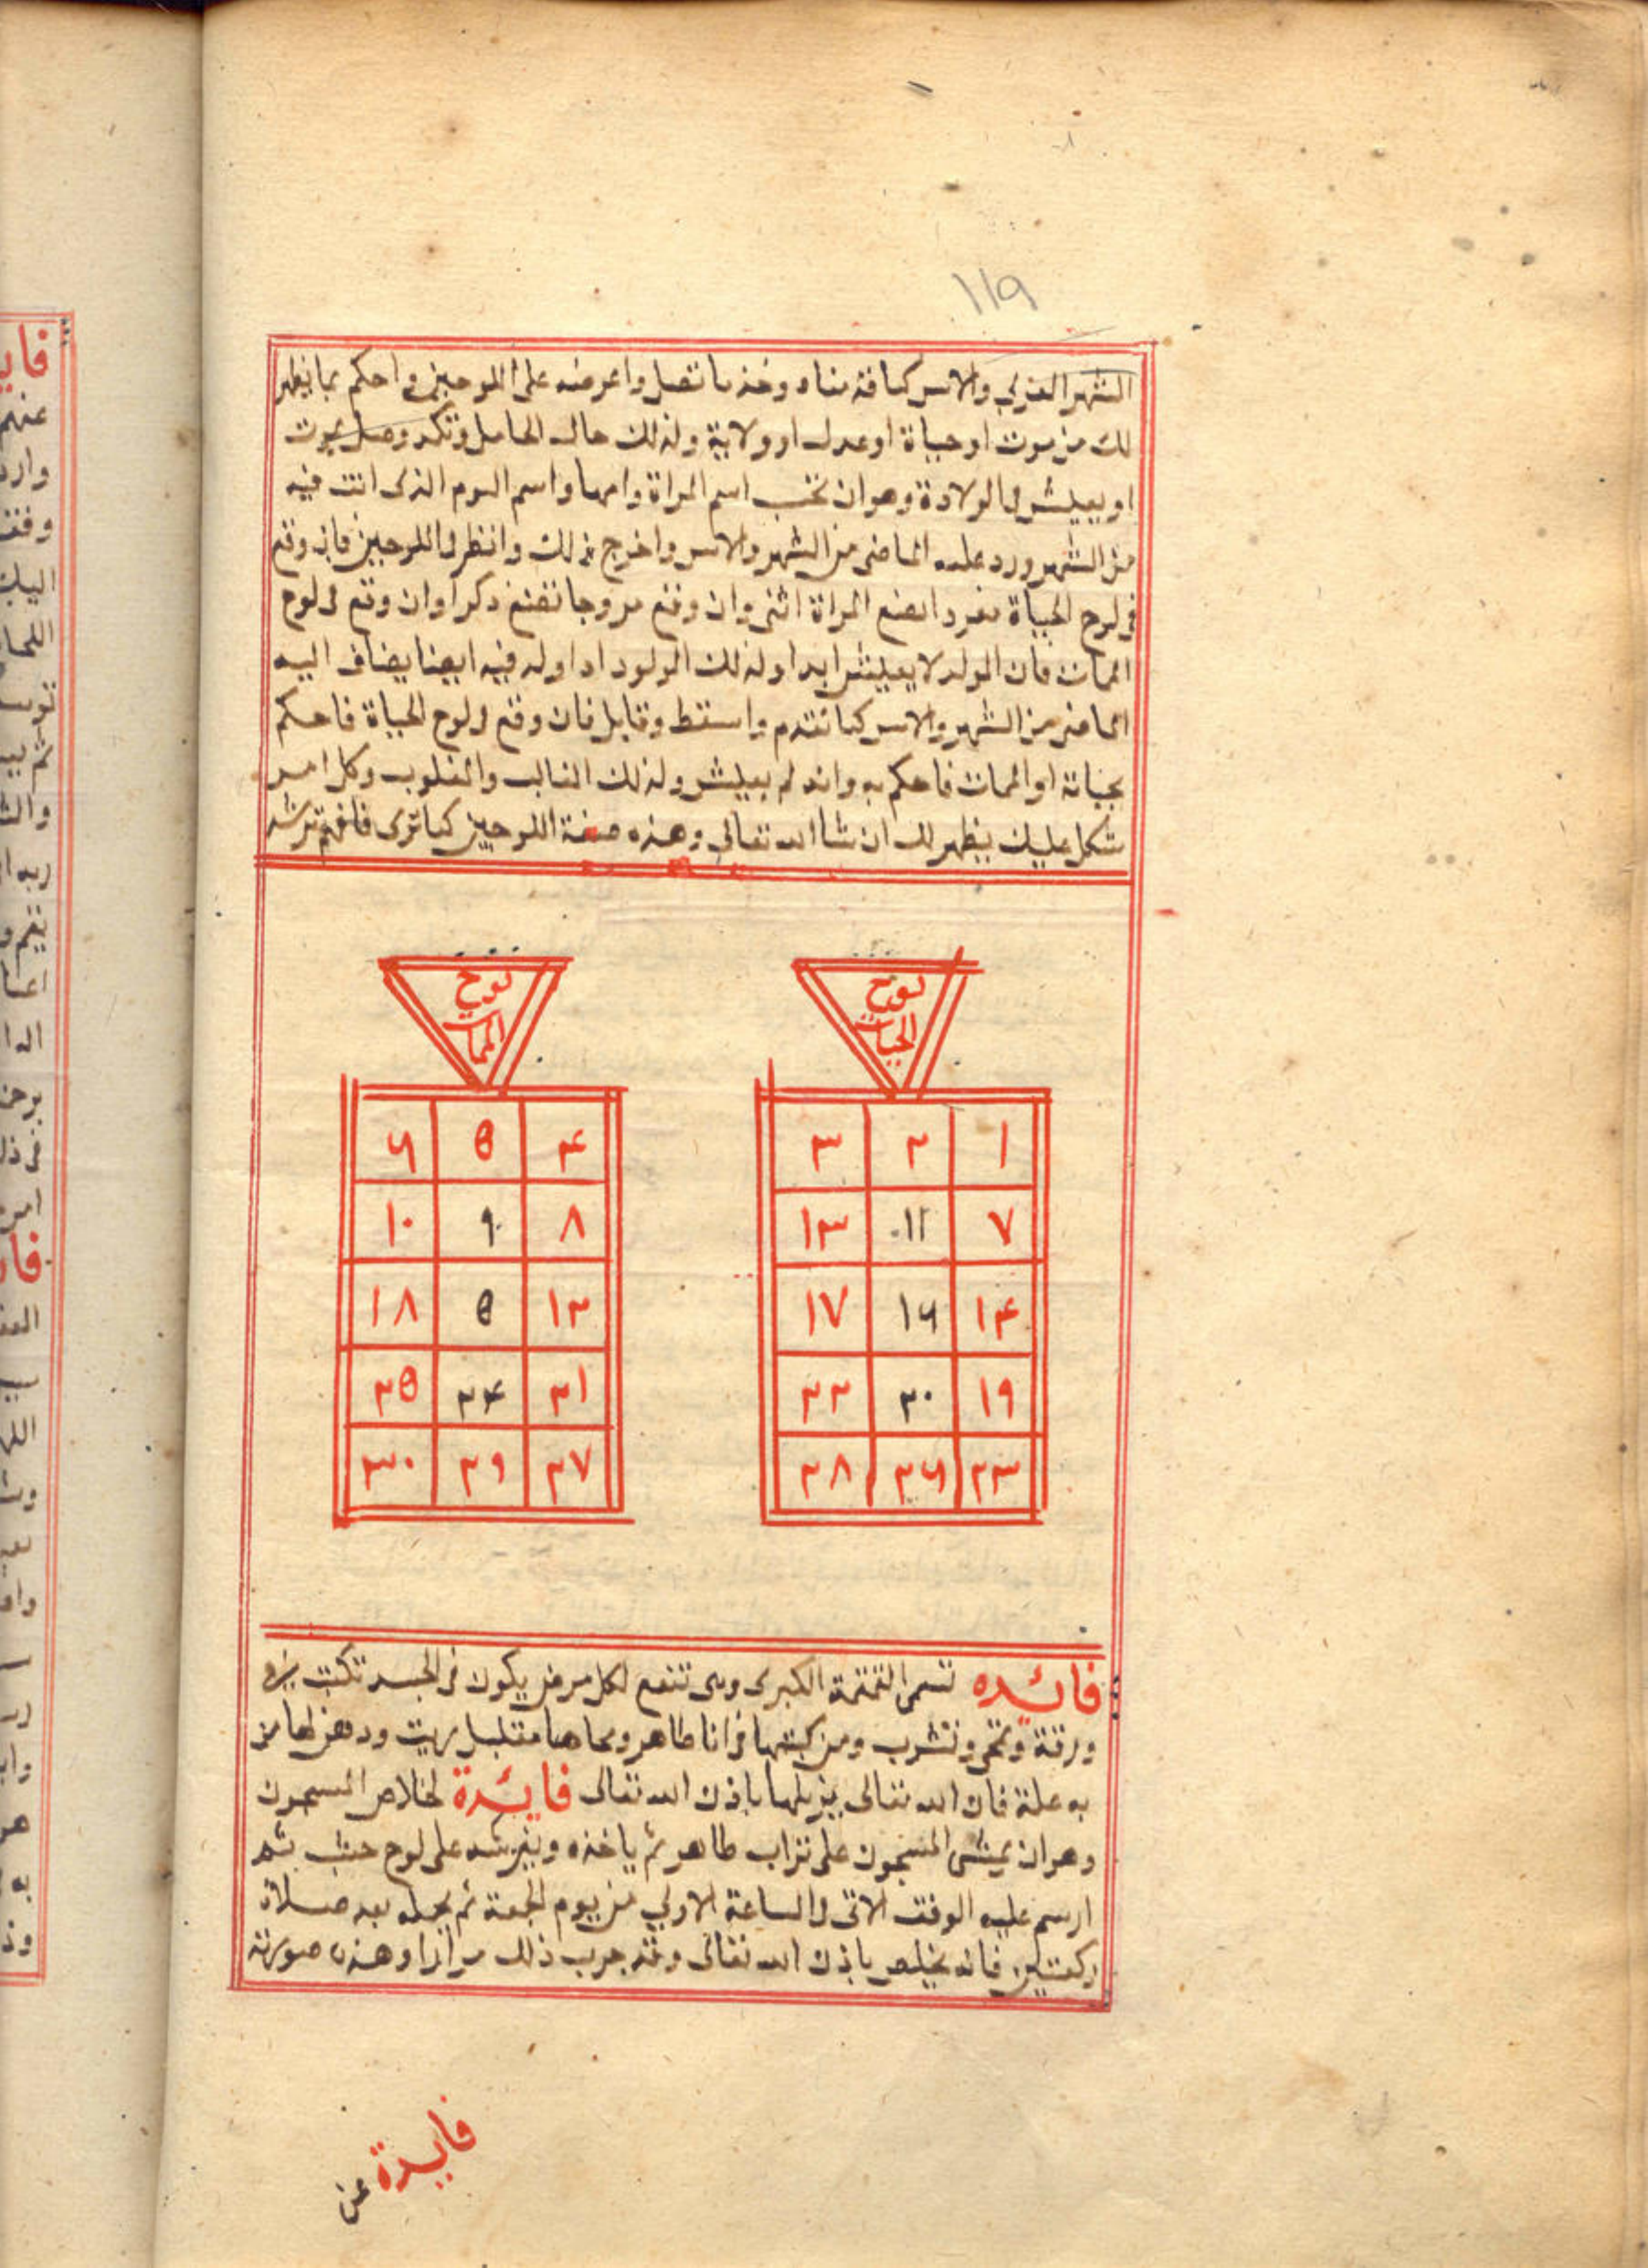 ١١٩
الشهر العربي والاس كما قدمناه وخذ ما تحصل واعرضه على اللوحين واحكم بما يظهر
لك من موت او حياة او عدل او ولاية وكذلك حال الحامل وتكد وهل يموت
او يعيش في الولادة وهو ان تحسب اسم المراة وامها واسم اليوم الذى انت فيه
من الشهر وزد عليه الماضى من الشهر والاس واخرج كذلك وانظر في اللوحين فان وقع
في لوح الحياة مفردا تضع المراة انثى وان وقع مزوجا تضع ذكرا وان وقع في لوح
الممات فان الولد لا يعيش ابدا وكذلك المولود اذا ولد فيه ايضا يضاف اليه
الماضى من الشهر والاس كما تقدم واسقط وقابل فان وقع في لوح الحياة فاحكم
بحياته او الممات فاحكم به وانه لم يعيش وكذلك الغالب والمغلوب وكل امر
شكل عليك يظهر لك ان شا الله تعالى وهذه صفة اللوحين كما ترى فافهم ترشد
لوح الحيات
١ ٢ ٣
٧ ١١ ١٣
١٤ ١٦ ١٧
١٩ ٢٠ ٢٢
٢٣ ٢٦ ٢٨
لوح الممات
٤ ٥ ٦
٨ ٩ ١٠
١٢ ٥ ١٨
٢١ ٢٤ ٢٥
٢٧ ٢٩ ٣٠
فائده تسمى الكبرى وهى تنفع لكل مرض يكون في الجسد تكتب في
ورقة وتمحى وتشرب ومن كتبها في انا طاهر ومحاها بقليل زيت ودهن بها من
به علة فان الله تعالى يزيلها باذن الله تعالى فائدة لخلاص المسجون
وهو ان يمشى المسجون على تراب طاهر ثم ياخذه ويفرشه على لوح خشب ثم
ارسم عليه الوفق الاتى في الساعة الاولي من يوم الجمعة ثم يحمله بعد صلاة
ركعتين فانه يخلص باذن الله تعالى وقد جرب ذلك مرارا وهذه صورته
فايدة عن